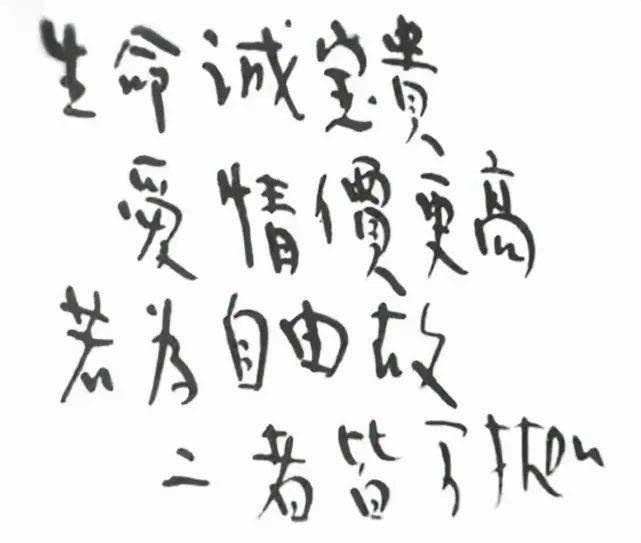 生命诚宝貴
爱情價更高
若为自由故
二者皆可抛